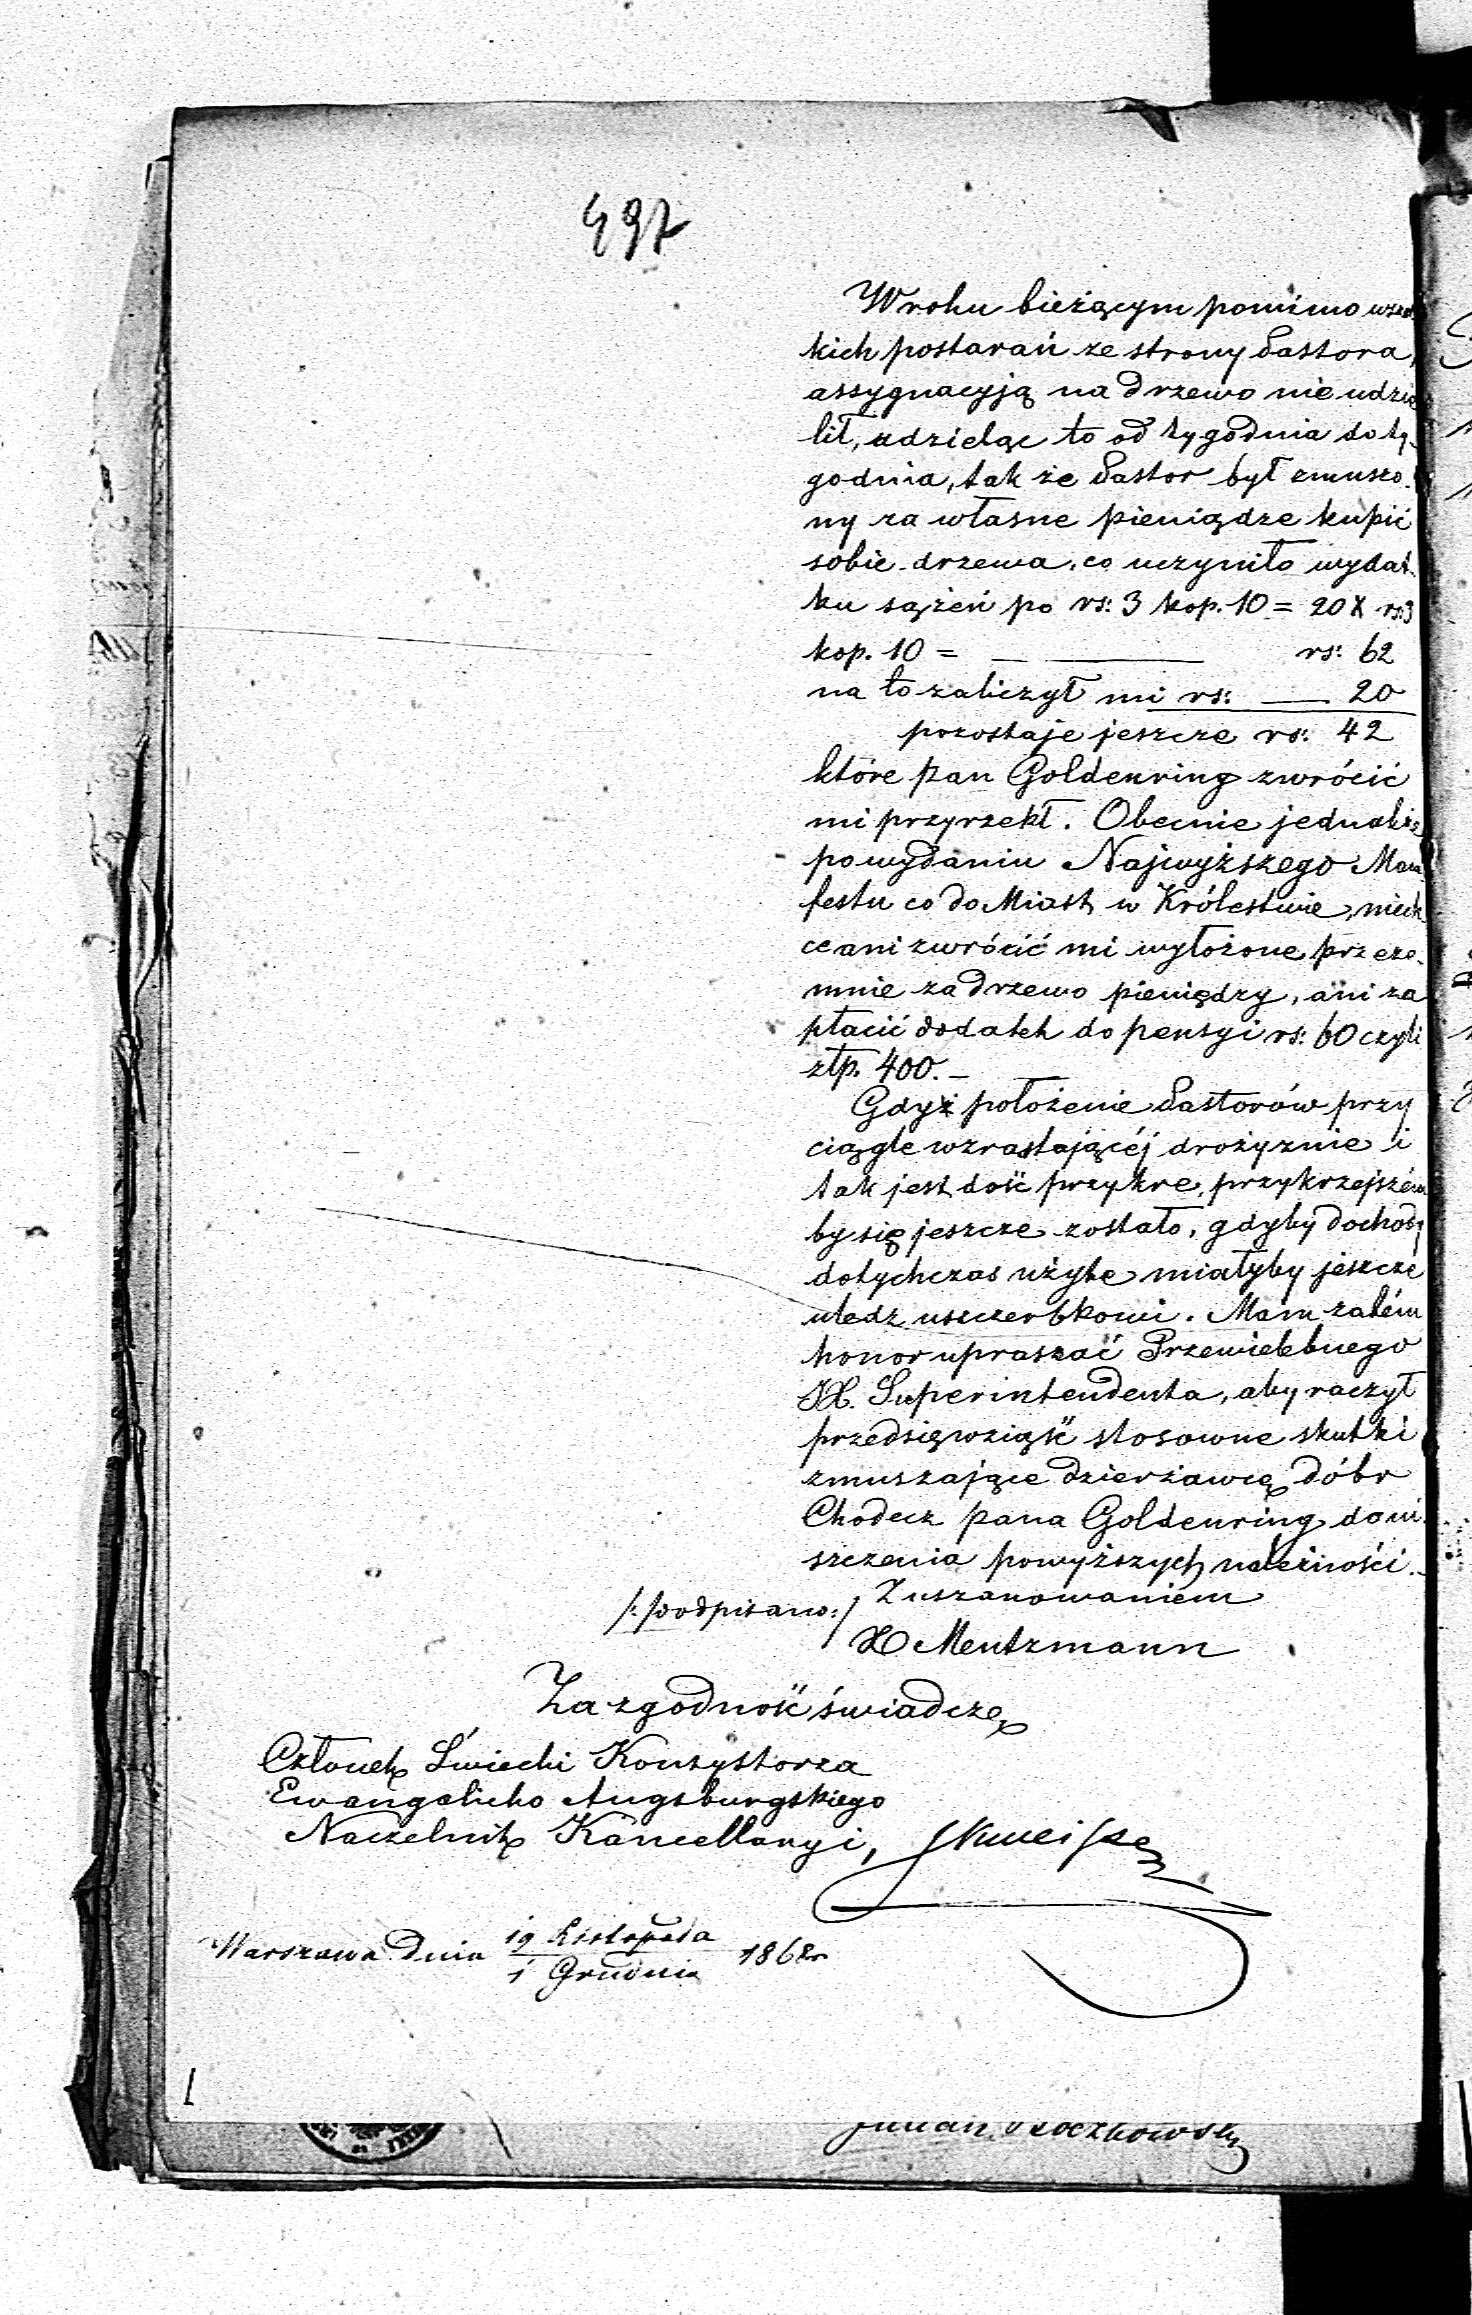 497
W roku bieżącym pomimo wszel
kich postarań ze strony Pastora,
assygnacyją na drzewo nie udzie
lił, udzieląc to od tygodnia do ty-
godnia, tak że Pastor był zmuszo-
ny za własne pieniądze kupić
sobie drzewa, co uczyniło wydat-
ku sążeń po rs: 3 kop. 10 = 20 X rs: 3
kop. 10 = — — rs: 62
na to zaliczył mi rs: — 20
pozostaje jeszcze rs: 42
które pan Goldenring zwrócić
mi przyrzekł. Obecnie jednakże
po wydaniu Najwyższego Mani
festu co do Miast w Królestwie, niech
ce ani zwrócić mi wyłożone prze ze-
mnie za drzewo pieniędzy, ani za
płacić dodatek do pensyi rs: 60 czyli
złp. 400.—
Gdyż położenie Pastorów przy
ciągle wzrastającéj drożyznie i
tak jest dość przykre, przykrzejszém
by się jeszcze zostało, gdyby dochody
dotychczas użyte miałyby jeszcze
uledz uszczerbkowi. Mam zatém
honor upraszać Przewielebnego
JX. Superintendenta, aby raczył
przedsięwziąść stosowne skutki
zmuszające dzierżawcę dóbr
Chodecz pana Goldenring do ui-
szczenia powyższych należności.—
Z uszanowaniem
/: podpisano :/
X Mentzmann
Za zgodność świadczę
Członek Świecki Konsystorza
Ewangelicko Augsburgskiego
Naczelnik Kancellaryi,
Warszawa dnia 19 Listopada
1 Grudnia 1868 r